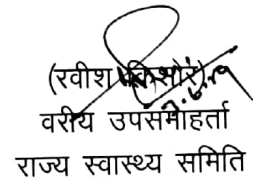 (रवीश किशोर)
7.6.19
वरीय उपसमाहर्ता
राज्य स्वास्थ्य समिति